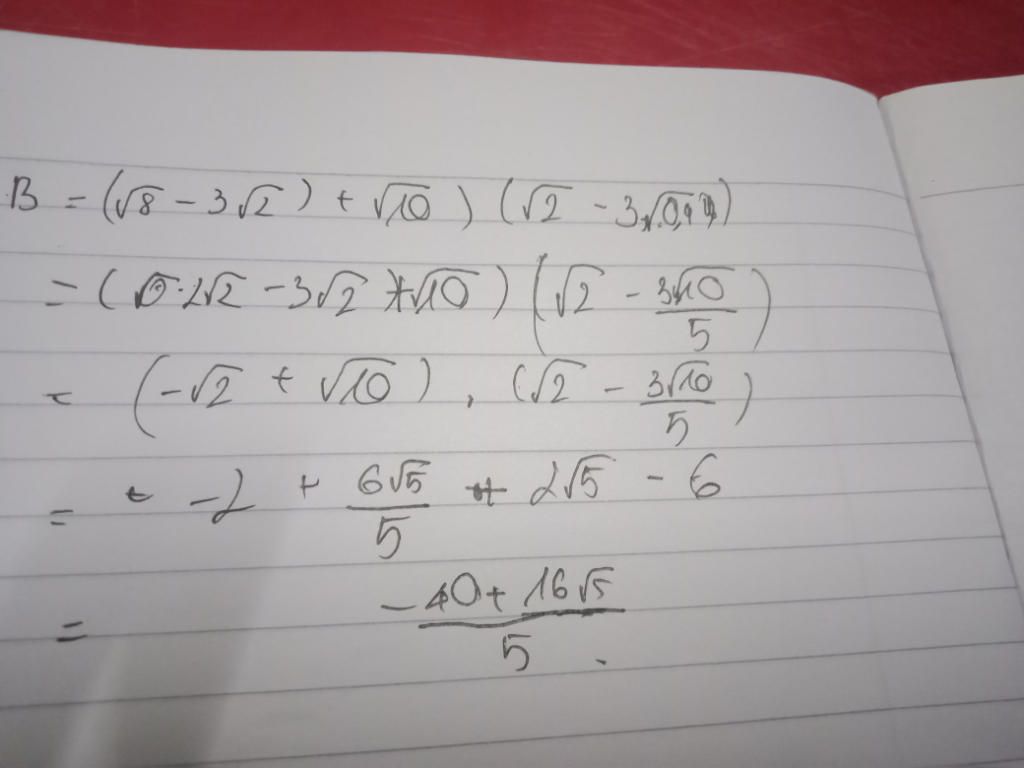 B = (√8 - 3√2) + √10) (√2 - 3√0,4)
= (2√2 - 3√2) + √10) (√2 - 3√10/5)
= (-√2 + √10) . (√2 - 3√10/5)
= -2 + 6√5/5 + 2√5 - 6
= -40 + 16√5/5.